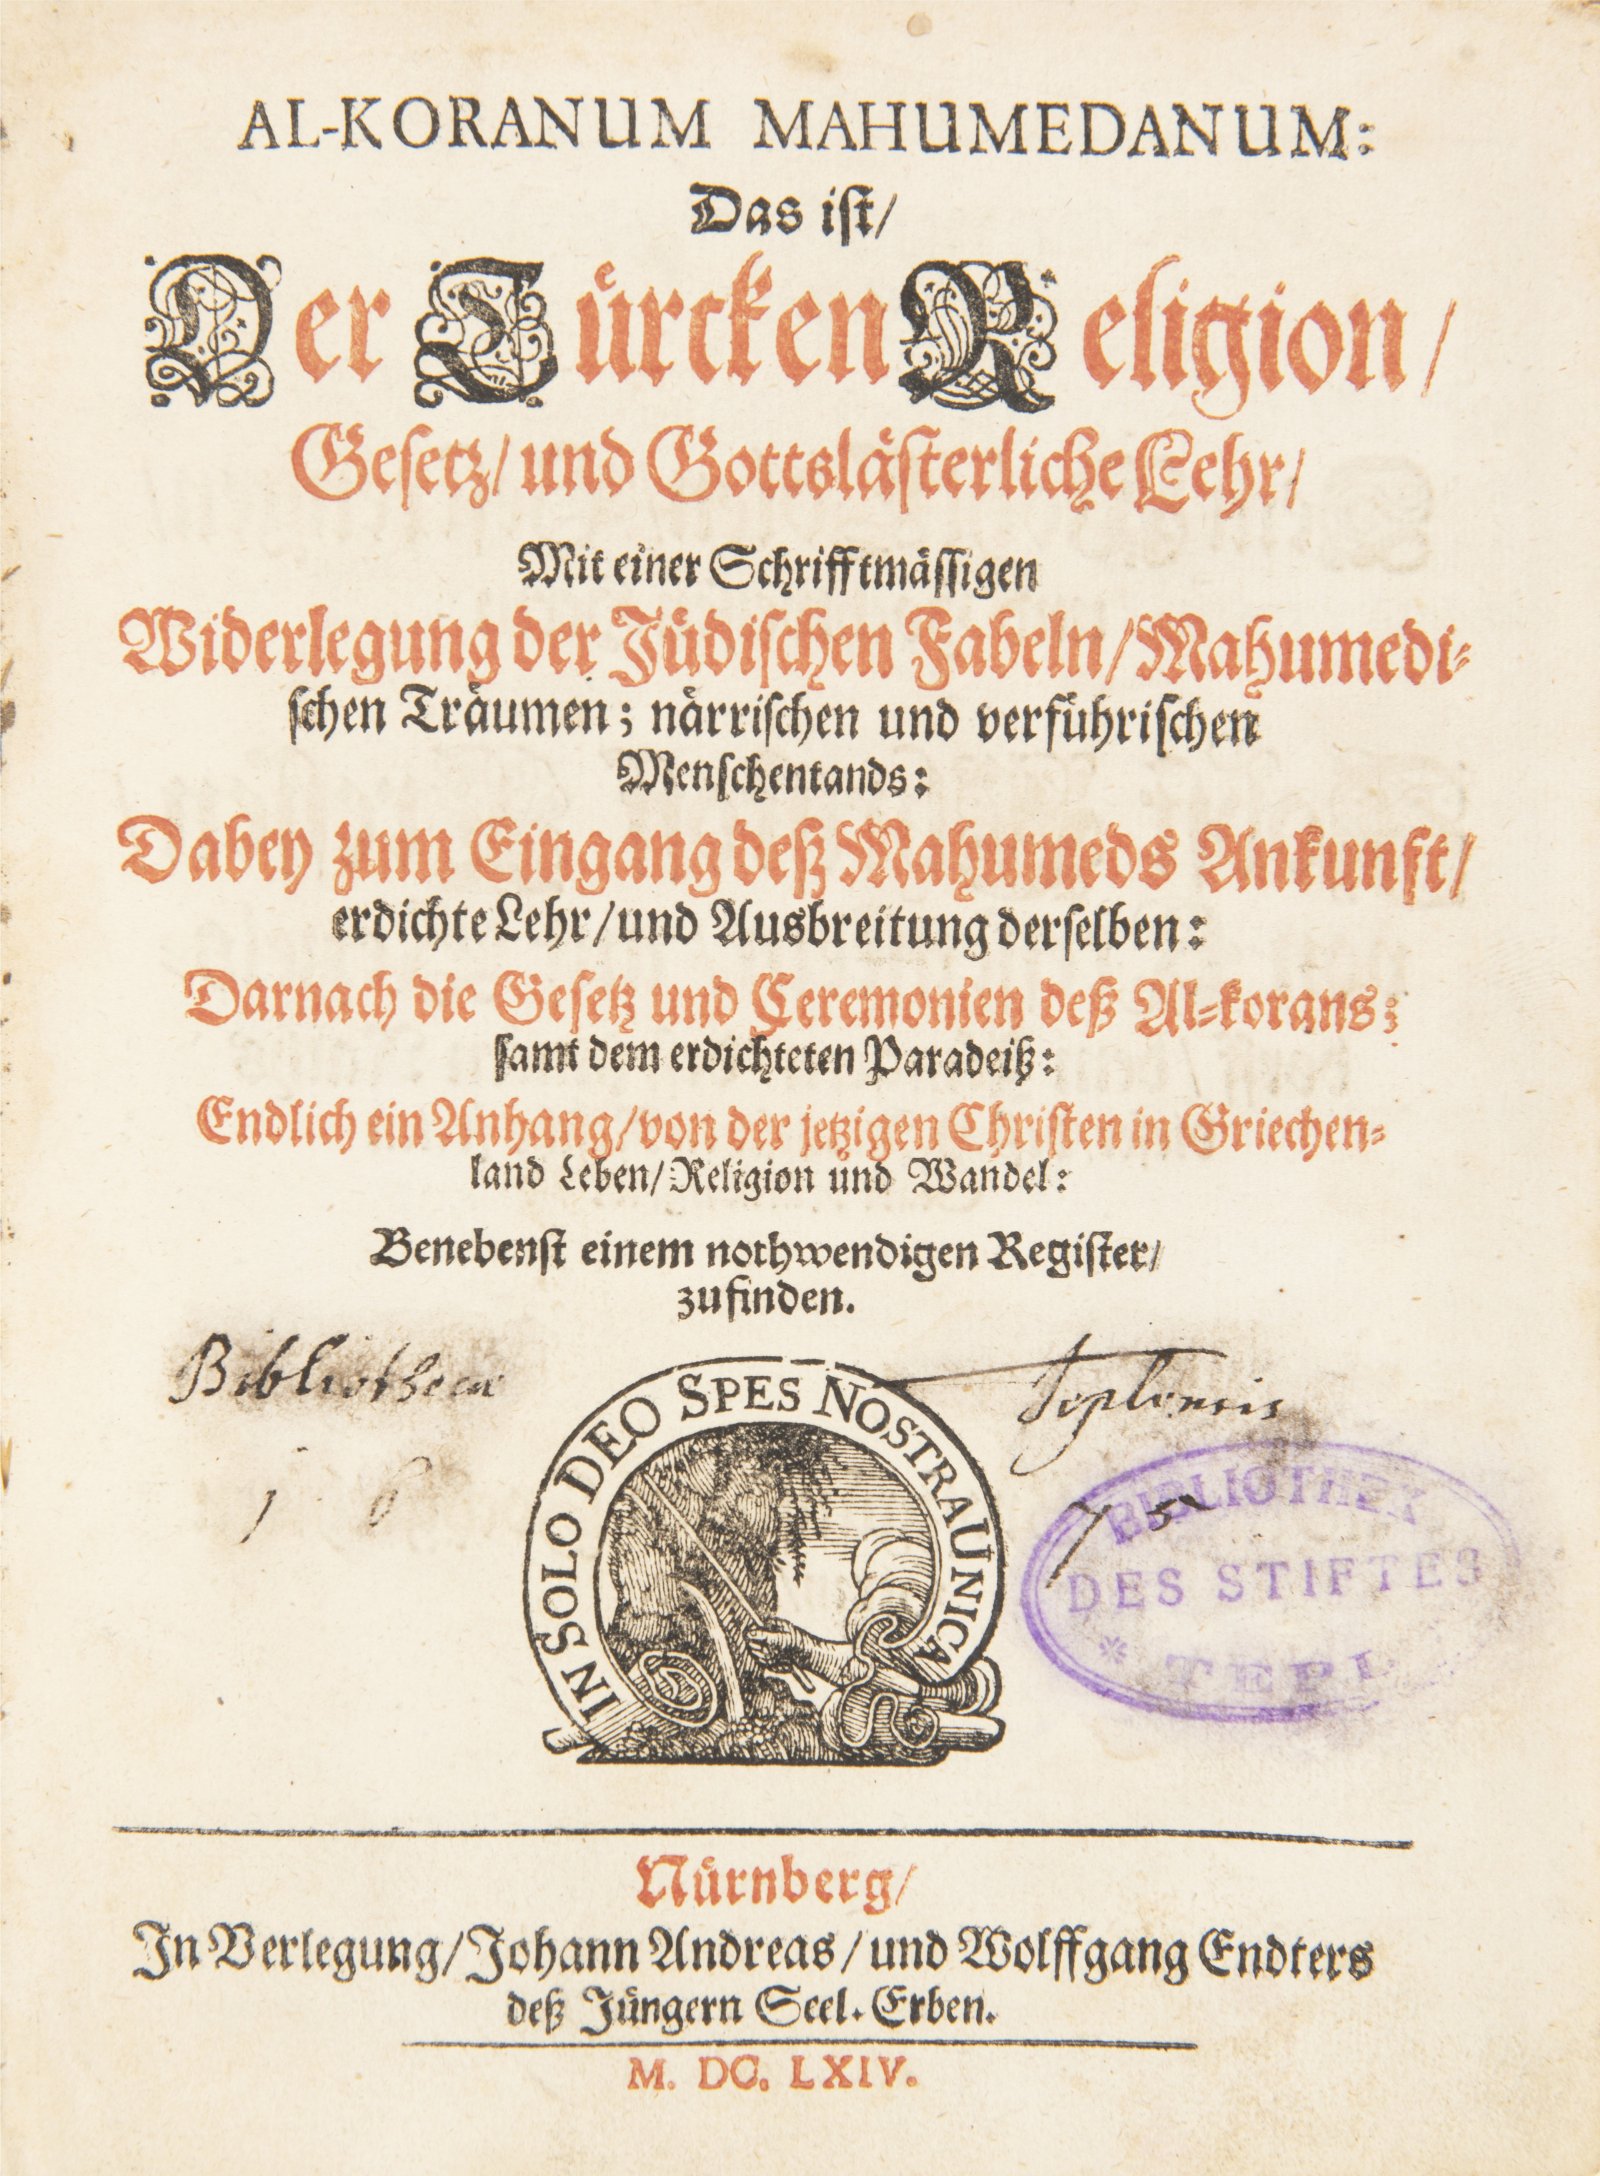 AL-KORANUM MAHUMEDANUM:
Das iſt/
Der Türcken Religion/
Geſetz/ und Gottsläſterliche Lehr/
Mit einer Schrifftmäſſigen
Widerlegung der Jüdiſchen Fabeln/ Mahumedi-
ſchen Träumen; närriſchen und verführiſchen
Menſchentands:
Dabey zum Eingang deß Mahumeds Ankunft/
erdichte Lehr/ und Ausbreitung derſelben:
Darnach die Geſetz und Ceremonien deß Al-korans;
ſamt dem erdichteten Paradeiß:
Endlich ein Anhang/ von der jetzigen Chriſten in Griechen-
land Leben/ Religion und Wandel:
Benebenſt einem nothwendigen Regiſter/
zu finden.
Bibliothecae Teplensis
1 6 7 5
IN SOLO DEO SPES NOSTRA UNICA
BIBLIOTHEK
DES STIFTES
* TEPL
Nürnberg/
In Verlegung/ Johann Andreas/ und Wolffgang Endters
deß Jüngern Seel. Erben.
M. DC. LXIV.